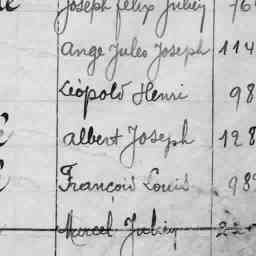 Joseph félix Julien 76
Ange Jules Joseph 114
Léopold Henri 98
albert Joseph 128
François Louis 98
Marcel Julien